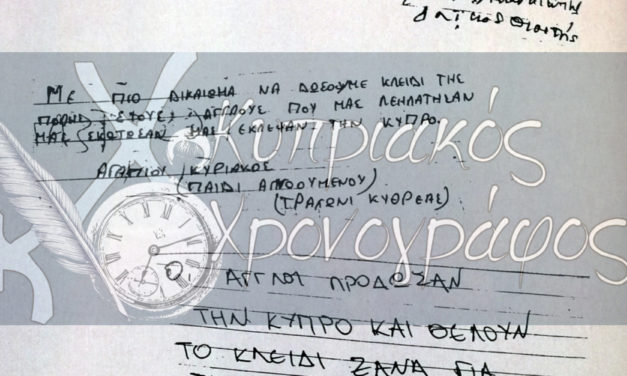 ΜΕ ΠΙΟ ΔΙΚΑΙΩΜΑ ΝΑ ΔΩΣΟΥΜΕ ΚΛΕΙΔΙ ΤΗΣ
ΑΓΓΛΟΥΣ ΠΟΥ ΜΑΣ ΛΕΗΛΑΤΗΣΑΝ
ΜΑΣ ΣΚΩΤΩΣΑΝ ΜΑΣ ΕΚΛΕΨΑΝ ΤΗΝ ΚΥΠΡΟ.
ΑΓΑΠΙΟΥ ΚΥΡΙΑΚΟΣ
(ΠΑΙΔΙ ΑΓΝΟΟΥΜΕΝΟΥ)
(ΤΡΑΧΩΝΙ ΚΥΘΡΕΑΣ)
Κυπριακός
Χρονογράφος
Οι ΑΓΓΛΟΙ ΠΡΟΔΟΣΑΝ
ΤΗΝ ΚΥΠΡΟ ΚΑΙ ΘΕΛΟΥΝ
ΤΟ ΚΛΕΙΔΙ ΞΑΝΑ ΓΙΑ